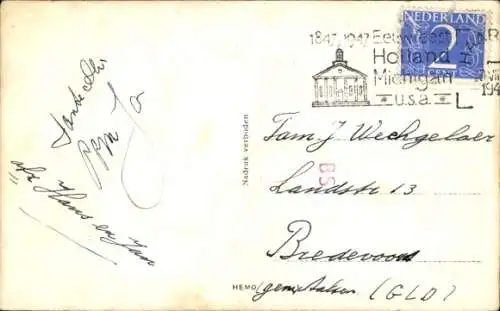 1847-1947
Eeuwfeest
Holland
Michigan
U.S.A.
NEDERLAND
2
CENT
Fam J Wechgelaer
Landstr 13
Bredevoort
(gem. Aalten (GLD)
Nadruk verboden
HEMO
BS
Hans en Jan